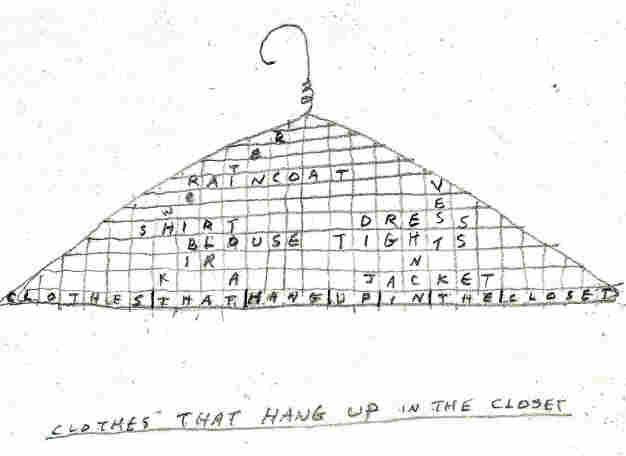 R
E
T
RAINCOAT V
E E
W S
SHIRT DRESS
BLOUSE TIGHTS
I R N
K A JACKET
CLOTHES THAT HANG UP IN THE CLOSET
CLOTHES THAT HANG UP IN THE CLOSET